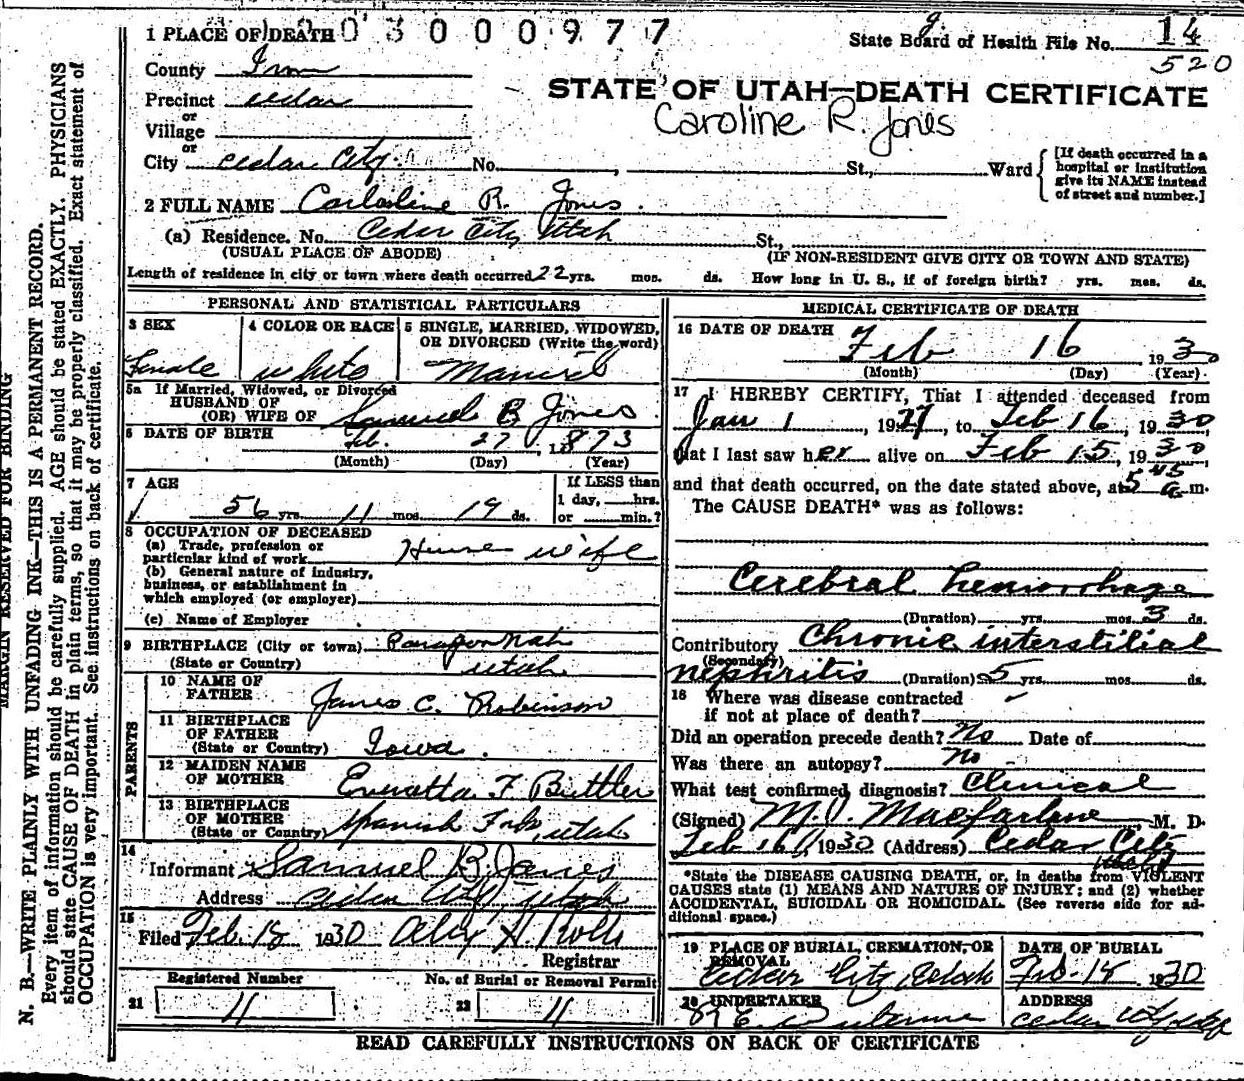 1 PLACE OF DEATH 0 3 0 0 0 9 7 7
State Board of Health File No. 14
520
County Iron
Precinct Cedar
or
Village
or
City Cedar City No. , St., Ward
[If death occurred in a hospital or institution give its NAME instead of street and number.]
STATE OF UTAH—DEATH CERTIFICATE
Caroline R. Jones
2 FULL NAME R. Jones
(a) Residence. No. Cedar City Utah St.,
(USUAL PLACE OF ABODE) (IF NON-RESIDENT GIVE CITY OR TOWN AND STATE)
Length of residence in city or town where death occurred 22 yrs. mos. ds. How long in U. S., if of foreign birth? yrs. mos. ds.
PERSONAL AND STATISTICAL PARTICULARS
3 SEX 4 COLOR OR RACE 5 SINGLE, MARRIED, WIDOWED, OR DIVORCED (Write the word)
Female white Married
5a If Married, Widowed, or Divorced
HUSBAND OF
(OR) WIFE OF Samuel B Jones
6 DATE OF BIRTH Feb. 27, 1873
(Month) (Day) (Year)
7 AGE If LESS than
1 day, hrs.
56 yrs. 11 mos. 19 ds. or min.?
8 OCCUPATION OF DECEASED
(a) Trade, profession or
particular kind of work House wife
(b) General nature of industry,
business, or establishment in
which employed (or employer)
(c) Name of Employer
9 BIRTHPLACE (City or town) Paragoonah
(State or Country) Utah
PARENTS
10 NAME OF
FATHER James C. Robinson
11 BIRTHPLACE
OF FATHER
(State or Country) Iowa.
12 MAIDEN NAME
OF MOTHER F Buttler
13 BIRTHPLACE
OF MOTHER
(State or Country) Spanish Fork, Utah
14
Informant Samuel B. Jones
Address Cedar City, Utah
15
Filed Feb. 18 1930
Registrar
Registered Number No. of Burial or Removal Permit
21 11 22 11
MEDICAL CERTIFICATE OF DEATH
16 DATE OF DEATH
Feb 16, 1930
(Month) (Day) (Year)
17 I HEREBY CERTIFY, That I attended deceased from
Jan 1, 1927, to Feb 16, 1930,
that I last saw her alive on Feb 15, 1930,
and that death occurred, on the date stated above, at 5 45 a.m.
The CAUSE DEATH* was as follows:
Cerebral hemorrhage
(Duration) yrs. mos. 3 ds.
Contributory Chronic interstitial
(Secondary)
nephritis (Duration) 5 yrs. mos. ds.
18 Where was disease contracted
if not at place of death?
Did an operation precede death? No Date of
Was there an autopsy? No
What test confirmed diagnosis? Clinical
(Signed) M. J. Macfarlane, M. D.
Feb 16, 1930 (Address) Cedar City
Utah
*State the DISEASE CAUSING DEATH, or, in deaths from VIOLENT
CAUSES state (1) MEANS AND NATURE OF INJURY; and (2) whether
ACCIDENTAL, SUICIDAL OR HOMICIDAL. (See reverse side for ad-
ditional space.)
19 PLACE OF BURIAL, CREMATION, OR REMOVAL DATE OF BURIAL
Cedar City, Utah Feb. 18 1930
20 UNDERTAKER ADDRESS
Cedar
READ CAREFULLY INSTRUCTIONS ON BACK OF CERTIFICATE
MARGIN RESERVED FOR BINDING
N. B.—WRITE PLAINLY WITH UNFADING INK—THIS IS A PERMANENT RECORD.
Every item of information should be carefully supplied. AGE should be stated EXACTLY. PHYSICIANS
should state CAUSE OF DEATH in plain terms, so that it may be properly classified. Exact statement of
OCCUPATION is very important. See instructions on back of certificate.